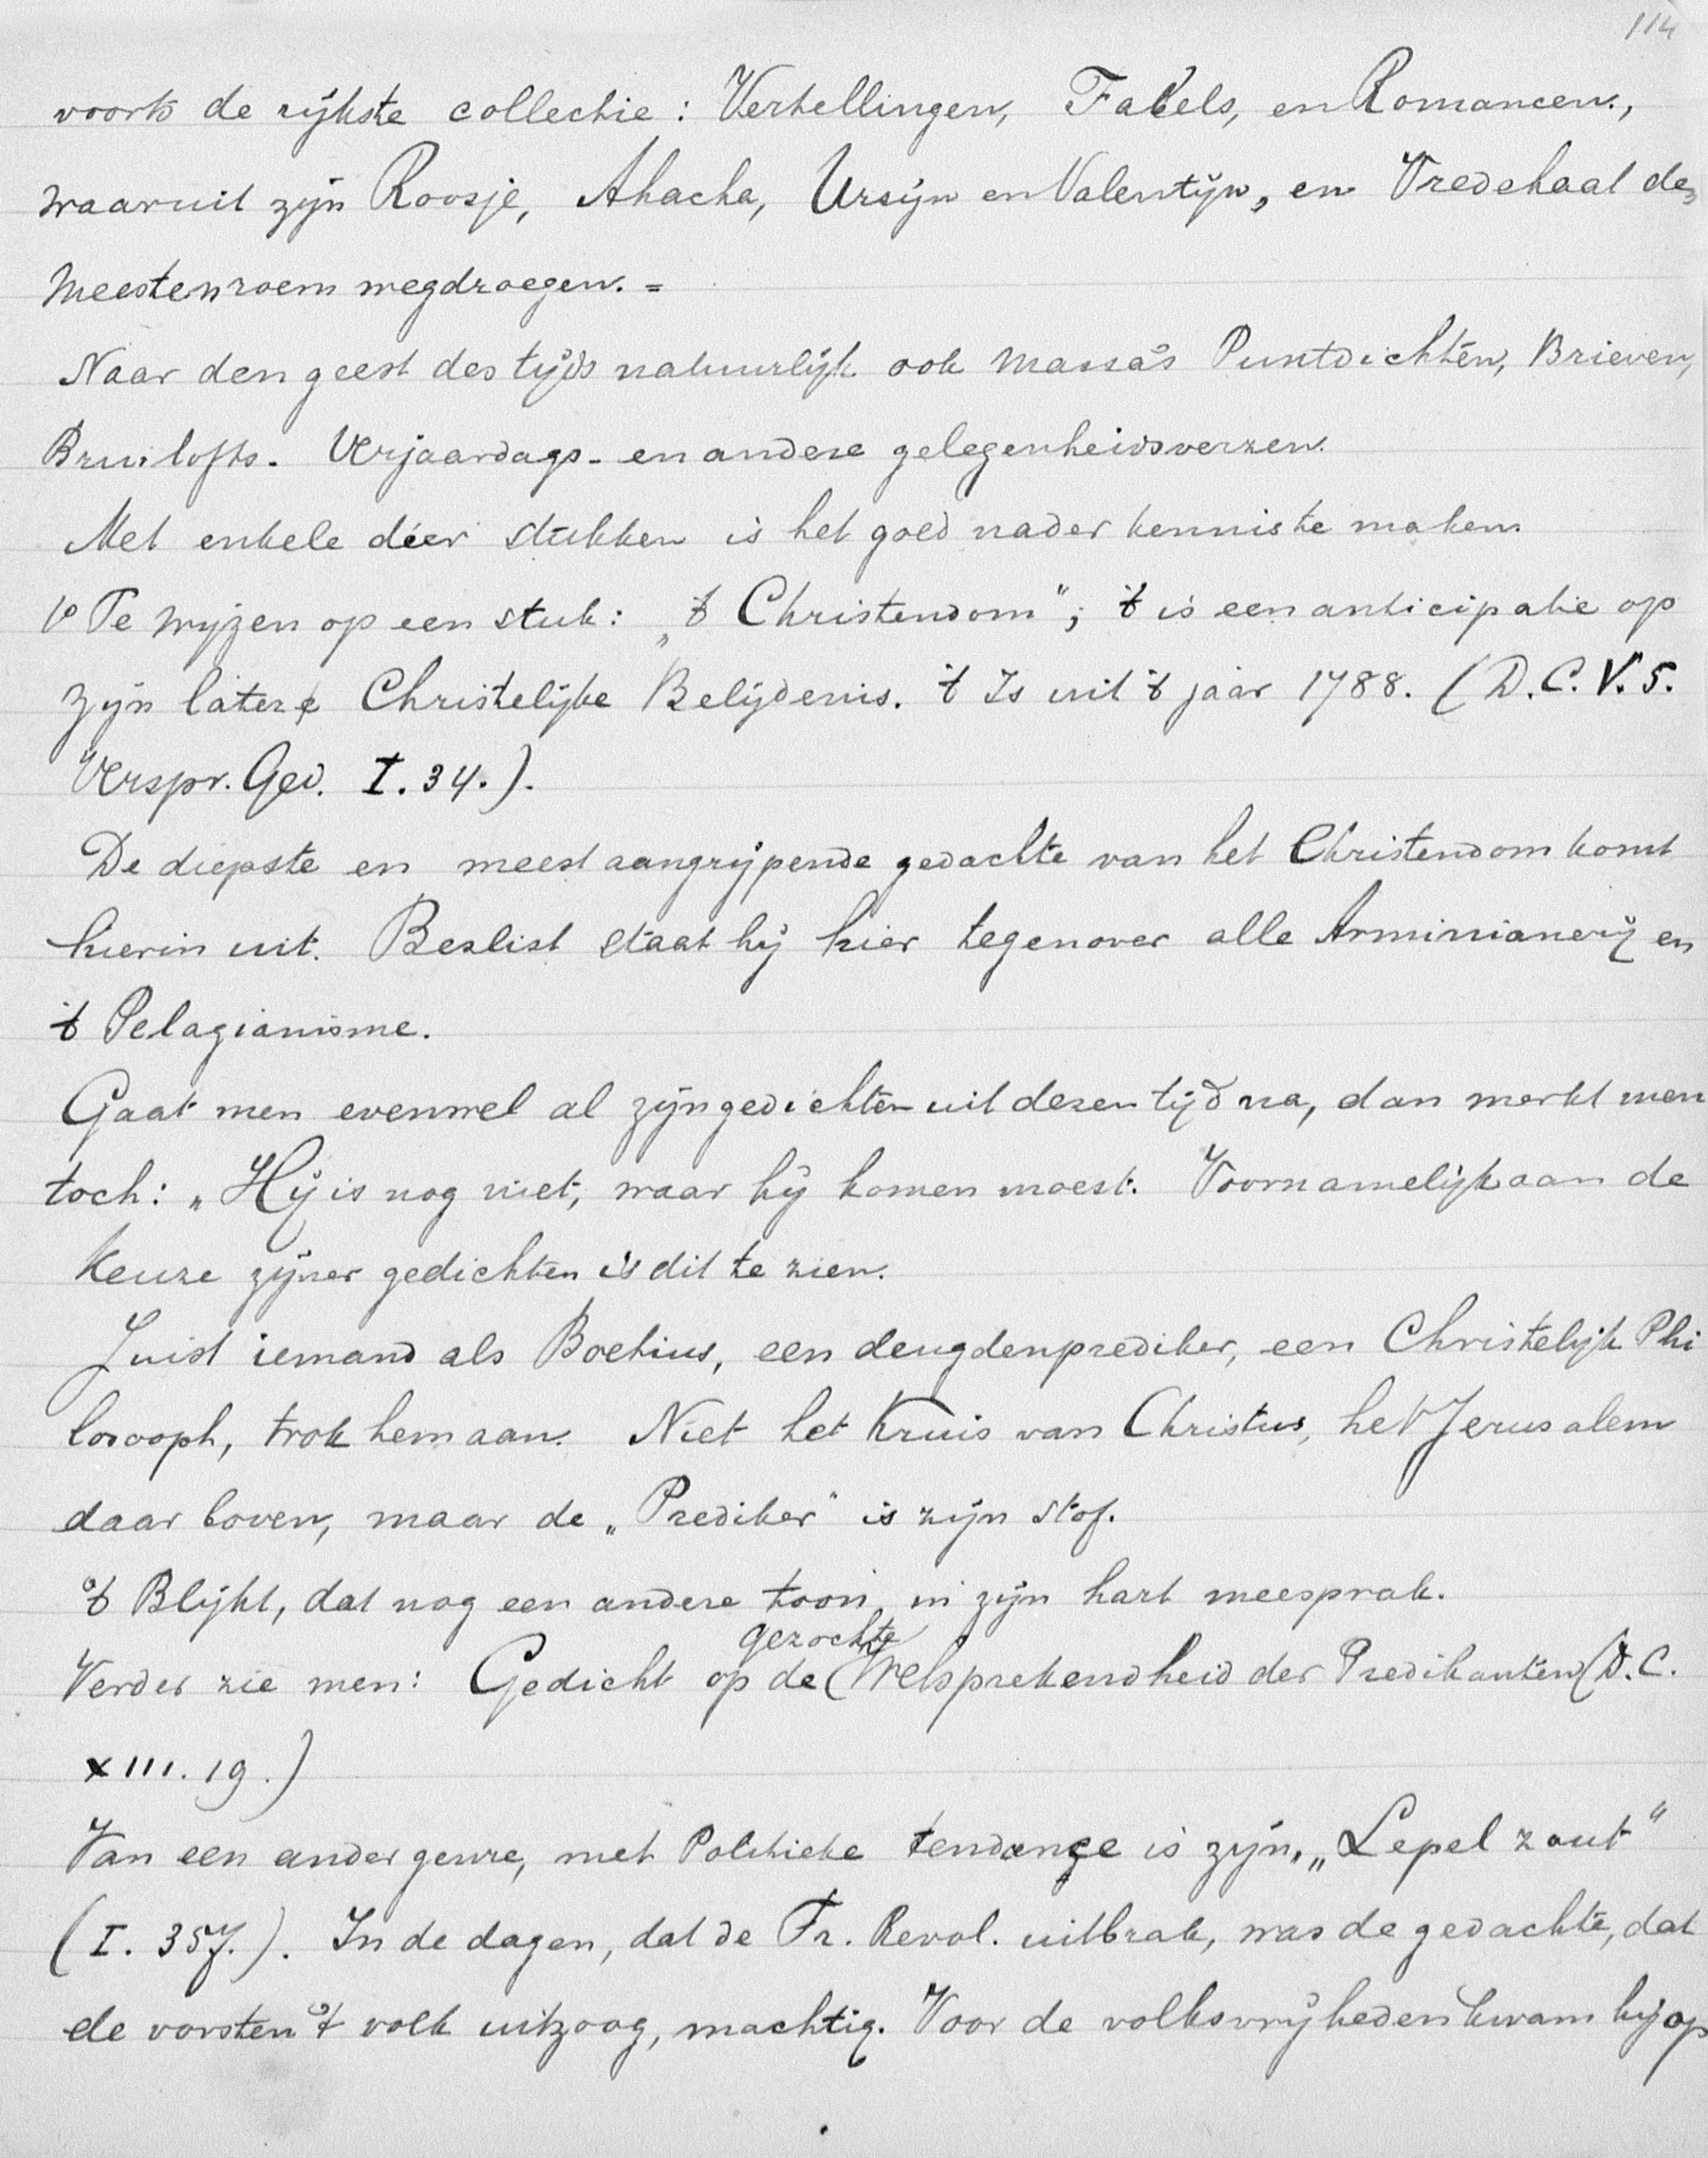 114
voorts de rijkste collectie: Vertellingen, Fabels, en Romancen,
waaruit zijn Roosje, Ahacha, Ursijn en Valentijn, en Vredehaal den
meesten roem wegdroegen. =
Naar den geest des tijds natuurlijk ook massa's Puntdichten, Brieven,
Bruilofts- Verjaardags- en andere gelegenheidsverzen.
Met enkele dier stukken is het goed nader kennis te maken.
1º Te wijzen op een stuk: „'t Christendom"; 't is een anticipatie op
zijn latere Christelijke Belijdenis. 't Is uit 't jaar 1788. (D. C. V. 5.
Verspr. Ged. I. 34.).
De diepste en meest aangrijpende gedachte van het Christendom komt
hierin uit. Beslist staat hij hier tegenover alle Arminianerij en
't Pelagianisme.
Gaat men evenwel al zijn gedichten uit dezen tijd na, dan merkt men
toch: „Hij is nog niet, waar hij komen moest. Voornamelijk aan de
keuze zijner gedichten is dit te zien.
Juist iemand als Boetius, een deugdenprediker, een Christelijk Phi
losooph, trok hem aan. Niet het Kruis van Christus, het Jerusalem
daar boven, maar de „Prediker" is zijn stof.
't Blijkt, dat nog een andere toon in zijn hart meesprak.
gezochte
Verder zie men: Gedicht op de (Welsprekendheid der Predikanten (D. C.
XIII. 19.)
Van een ander genre, met Politieke tendenze is zijn „Lepel zout"
(I. 357.). In de dagen, dat de Fr. Revol. uitbrak, was de gedachte, dat
de vorsten 't volk uitzoog, machtig. Voor de volksvrijheden kwam hij op